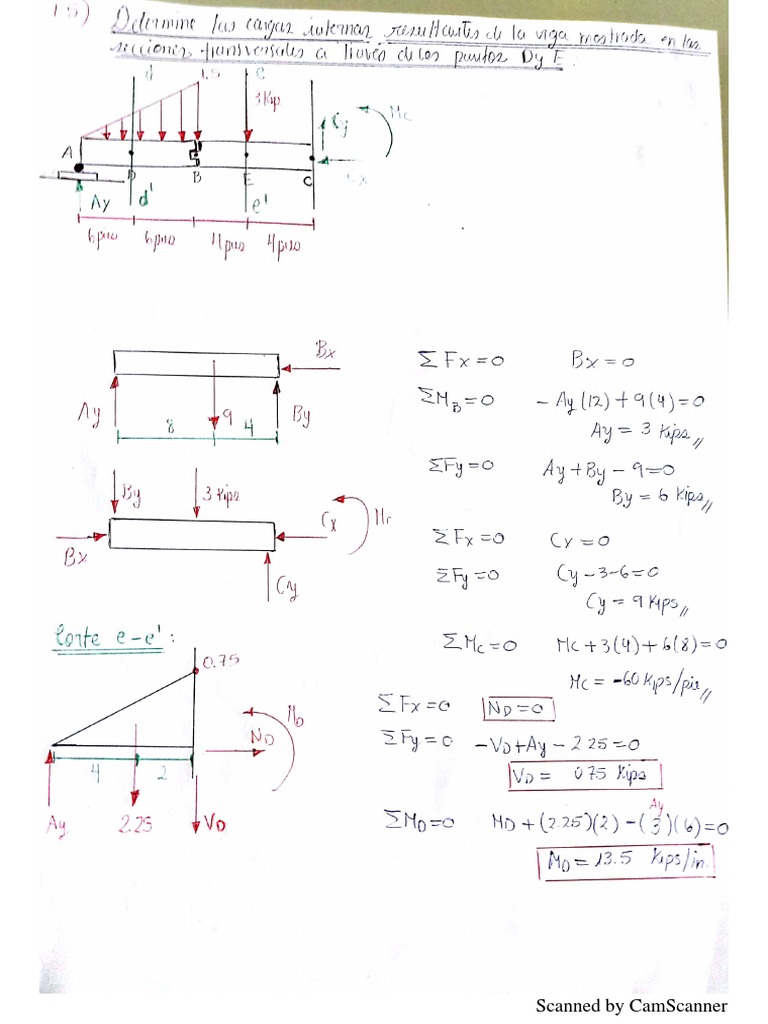 1.5) Determine las cargas internas resultantes de la viga mostrada en las
secciones transversales a través de los puntos D y E.
d 1.5 e
3 Kip
Cy Mc
A D B E C Cx
Ay d' e'
6 pies 6 pies 4 pies 4 pies
Bx
Ay 8 9 4 By
ΣFx=0 Bx=0
ΣM_B=0 -Ay(12)+9(4)=0
Ay = 3 Kips //
ΣFy=0 Ay+By-9=0
By = 6 Kips //
By 3 Kips
Bx Cx Mc
Cy
ΣFx=0 Cx=0
ΣFy=0 Cy-3-6=0
Cy = 9 Kips //
ΣMc=0 Mc+3(4)+6(8)=0
Mc = -60 Kips/pie //
Corte e-e':
0.75
4 2 ND MD
Ay 2.25 VD
ΣFx=0 ND=0
ΣFy=0 -VD+Ay-2.25=0
VD = 0.75 Kips
ΣMD=0 MD+(2.25)(2)-(3)(6)=0
Ay
MD = 13.5 Kips/in.
Scanned by CamScanner